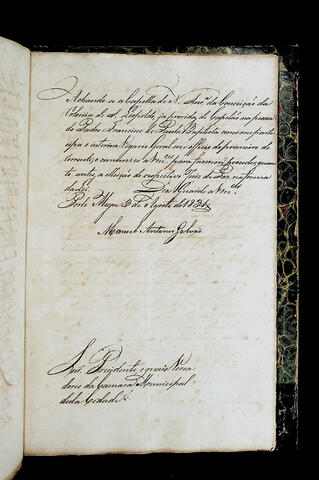 Achando-se a Capella de N. Snrª da Conceição da
Colonia de S. Leopoldo ja provida de Capelão na pessoa
do Padre Francisco de Paula Baptista como em parte
cipa o interino Vigario Geral em officio do primeiro do
corrente, o communico a Vmces para fazerem proceder quan
to antes, a eleição do respectivo Juiz de Paz na forma
da Lei. Deos Guarde a Vmces
Porto Alegre 3 de Agosto de 1831
Manoel Antonio Galvão
Snrs. Presidente, e mais Verea
dores da Camara Municipal
desta Cidade